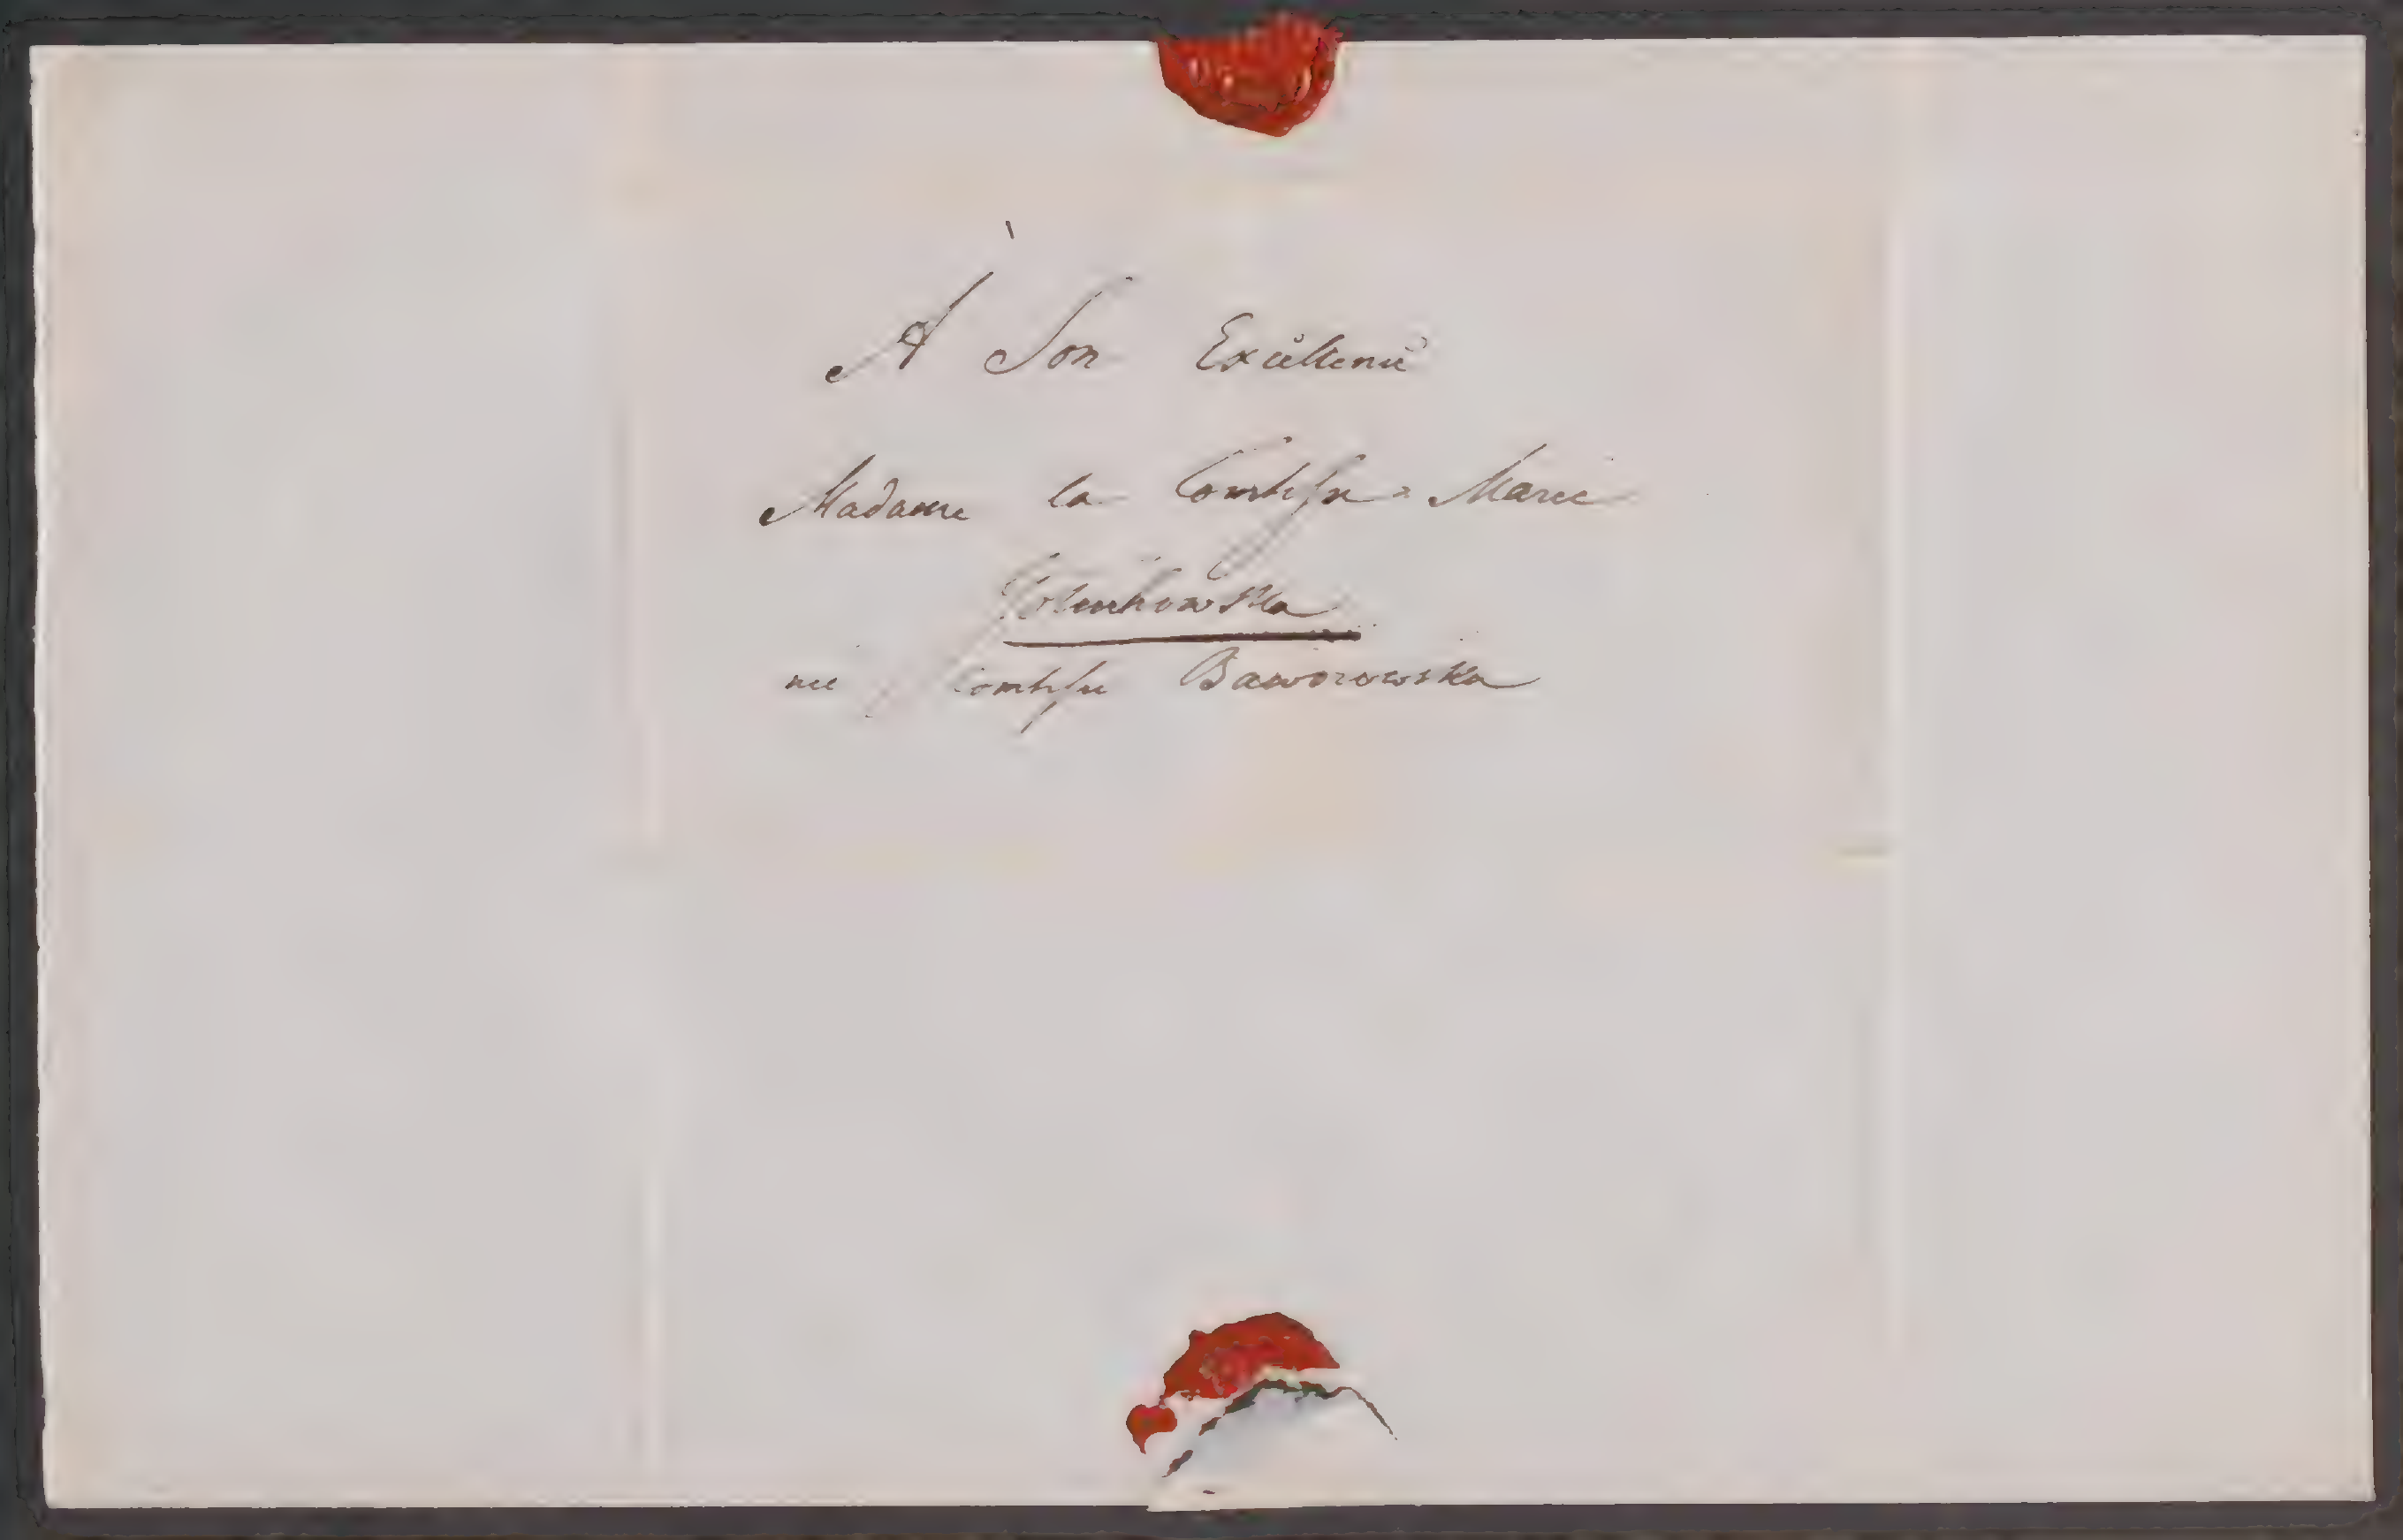 À Son Excellence
Madame la Comtesse Marie
née Comtesse Baworowska